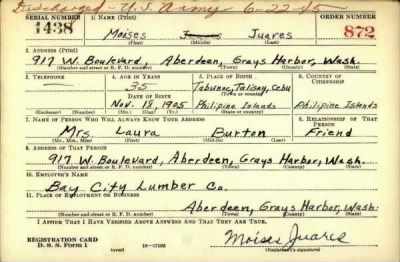 Discharged - U.S. Army - 6-22-45
SERIAL NUMBER 1. NAME (Print)
1438 Moises Juares 872
(First) (Middle) (Last)
2. ADDRESS (Print)
917 W. Boulevard, Aberdeen, Grays Harbor, Wash.
(Number and street or R. F. D. number) (Town) (County) (State)
3. TELEPHONE 4. AGE IN YEARS 5. PLACE OF BIRTH 6. COUNTRY OF CITIZENSHIP
— 35 Tabunoc, Talisay, Cebu
DATE OF BIRTH (Town or county)
Nov. 18, 1905 Philipine Islands Philipine Islands
(Exchange) (Number) (Mo.) (Day) (Yr.) (State or country)
7. NAME OF PERSON WHO WILL ALWAYS KNOW YOUR ADDRESS 8. RELATIONSHIP OF THAT PERSON
Mrs. Laura Burton Friend
(Mr., Mrs., Miss) (First) (Middle) (Last)
9. ADDRESS OF THAT PERSON
917 W. Boulevard, Aberdeen, Grays Harbor, Wash.
(Number and street or R. F. D. number) (Town) (County) (State)
10. EMPLOYER'S NAME
Bay City Lumber Co.
11. PLACE OF EMPLOYMENT OR BUSINESS
Aberdeen, Grays Harbor, Wash.
(Number and street or R. F. D. number) (Town) (County) (State)
I AFFIRM THAT I HAVE VERIFIED ABOVE ANSWERS AND THAT THEY ARE TRUE.
REGISTRATION CARD
D. S. S. Form 1 (over) Moises Juares
(Registrant's signature)